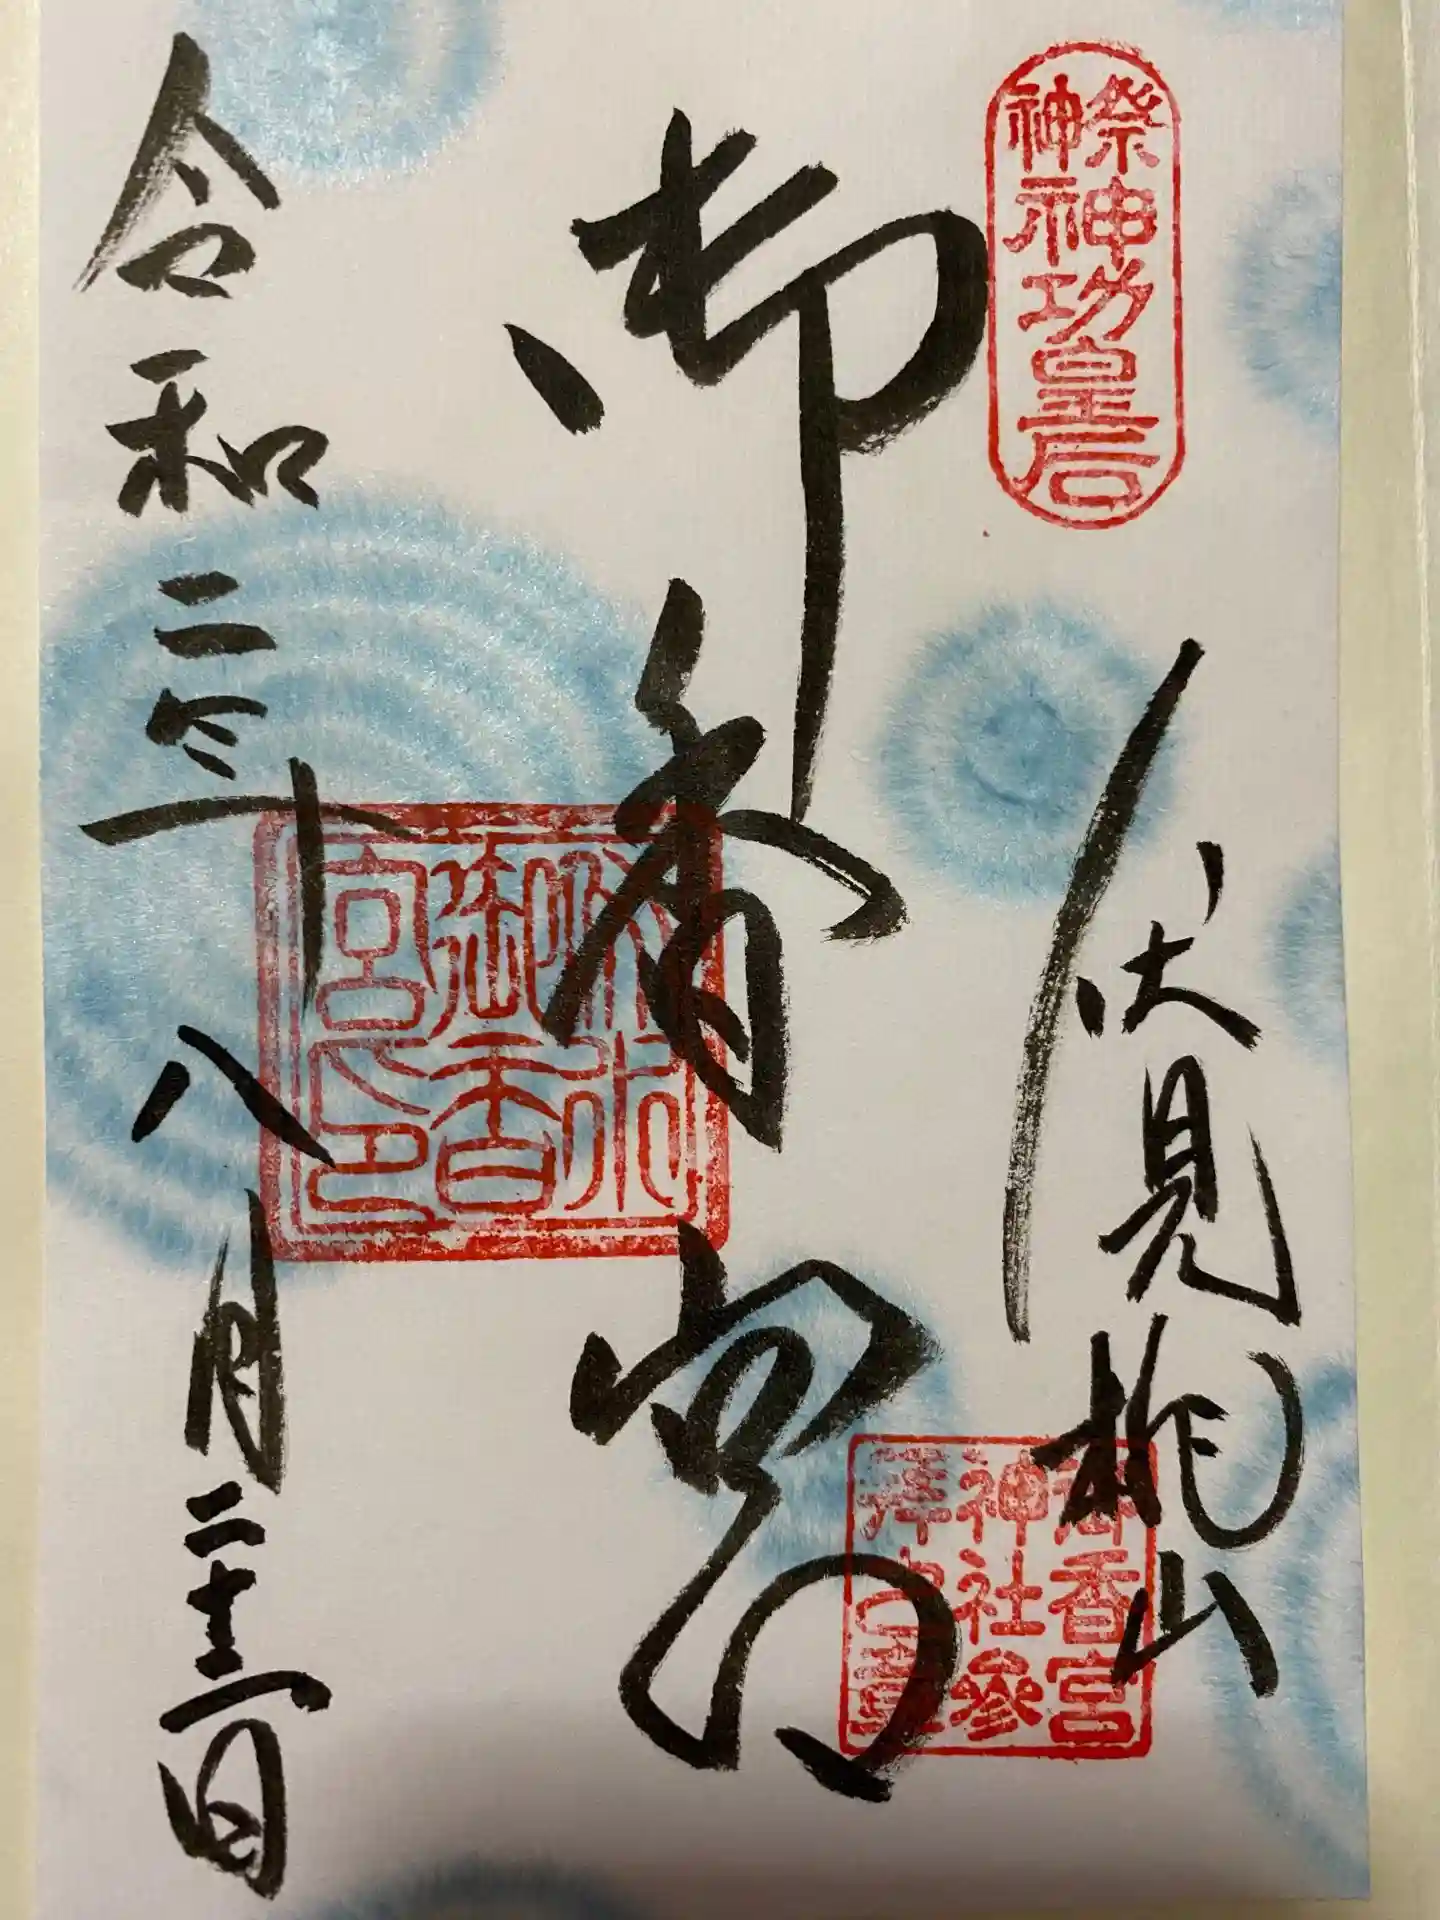 祭神
神功皇后
伏見桃山
御香宮
御香宮
神社參
拝
御香
宮印
令和二年八月二十三日